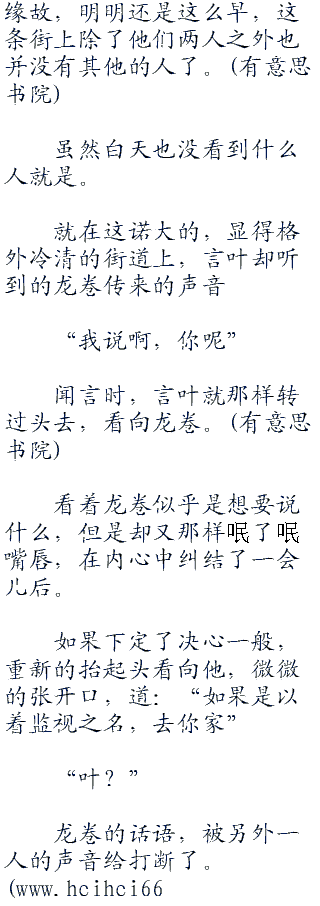 缘故，明明还是这么早，这
条街上除了他们两人之外也
并没有其他的人了。(有意思
书院)
虽然白天也没看到什么
人就是。
就在这诺大的，显得格
外冷清的街道上，言叶却听
到的龙卷传来的声音
“我说啊，你呢”
闻言时，言叶就那样转
过头去，看向龙卷。(有意思
书院)
看着龙卷似乎是想要说
什么，但是却又那样眠了眠
嘴唇，在内心中纠结了一会
儿后。
如果下定了决心一般，
重新的抬起头看向他，微微
的张开口，道：“如果是以
着监视之名，去你家”
“叶？”
龙卷的话语，被另外一
人的声音给打断了。
(www.hcihci66